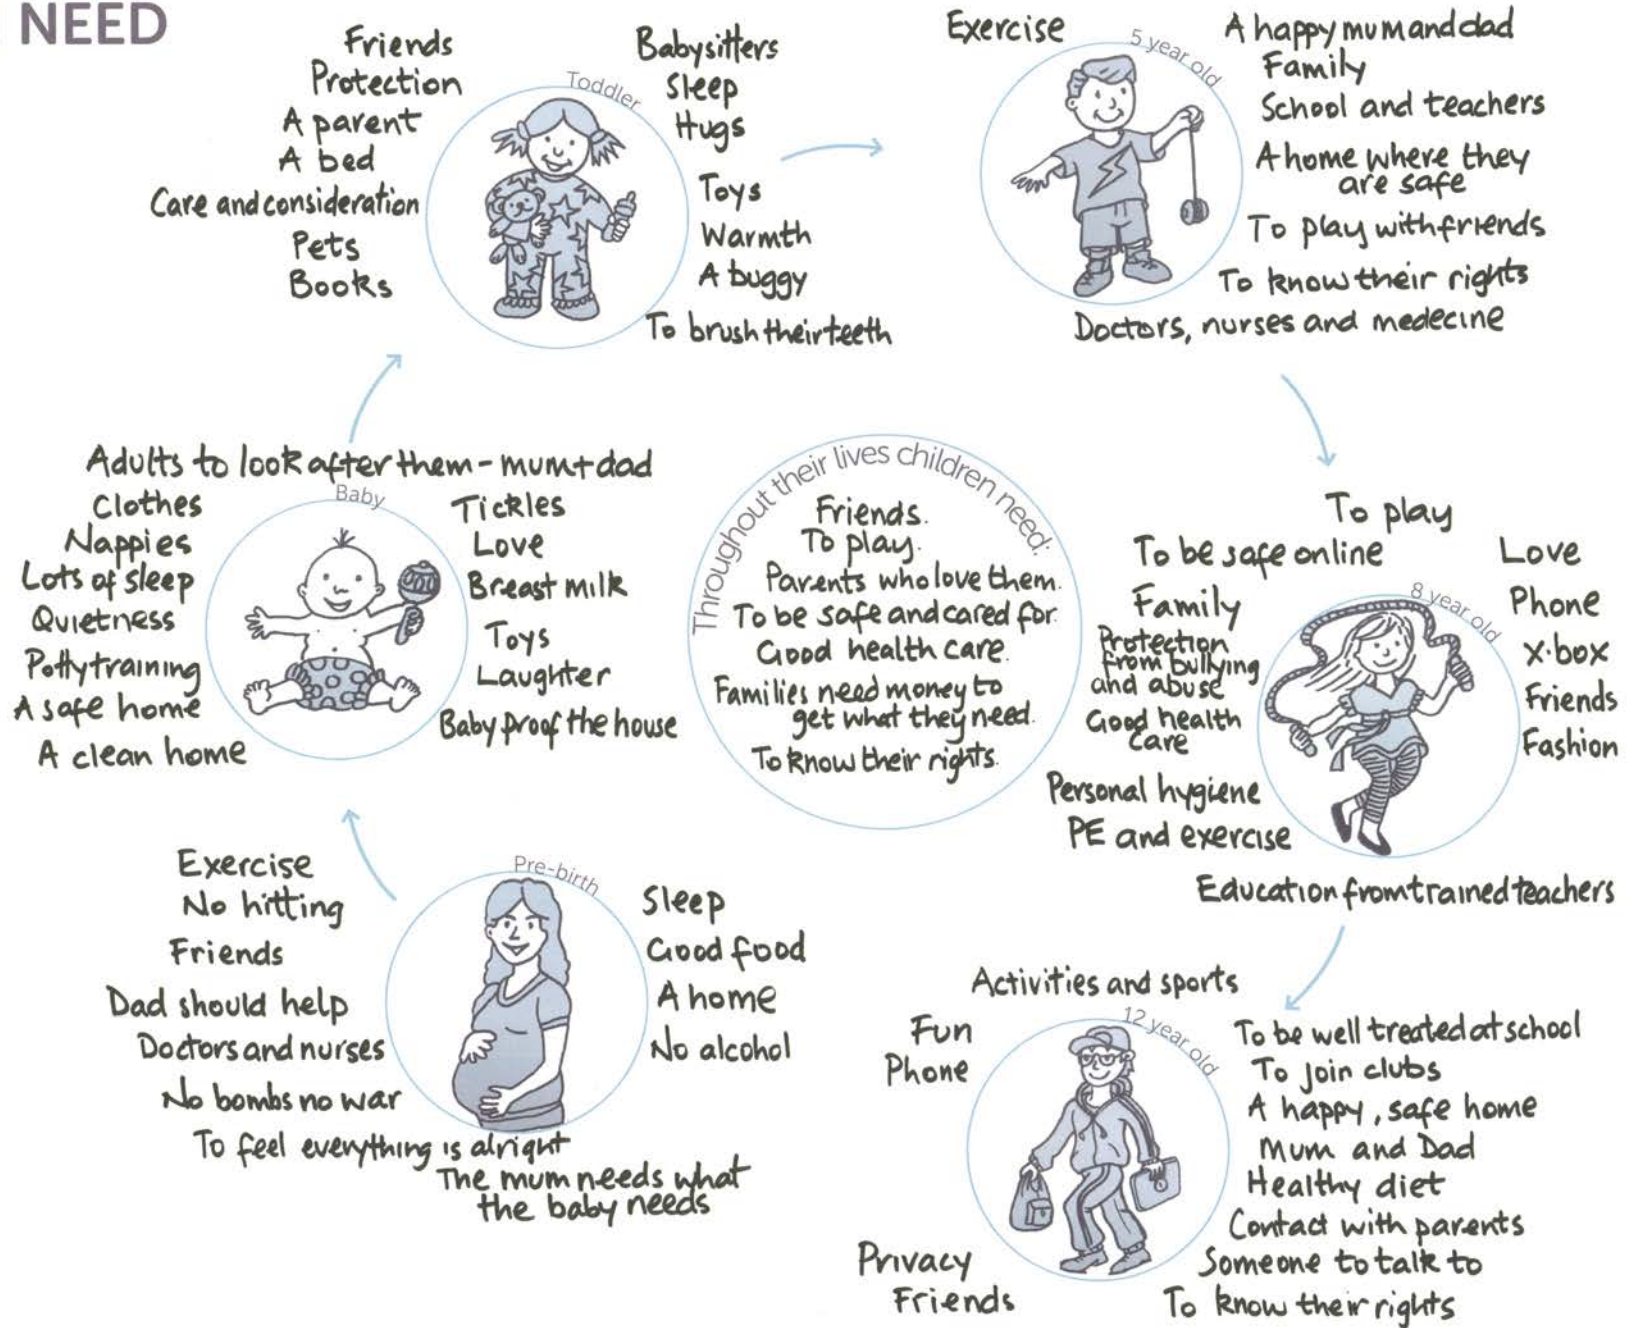 NEED
Friends
Protection
A parent
A bed
Care and consideration
Pets
Books
Toddler
Babysitters
Sleep
Hugs
Toys
Warmth
A buggy
To brush their teeth
Exercise
5 year old
A happy mum and dad
Family
School and teachers
A home where they
are safe
To play with friends
To know their rights
Doctors, nurses and medecine
Adults to look after them - mum + dad
Clothes
Nappies
Lots of sleep
Quietness
Potty training
A safe home
A clean home
Baby
Tickles
Love
Breast milk
Toys
Laughter
Baby proof the house
Throughout their lives children need:
Friends.
To play.
Parents who love them.
To be safe and cared for.
Good health care.
Families need money to
get what they need.
To know their rights.
To play
To be safe online
Family
Protection
from bullying
and abuse
Good health
care
Personal hygiene
PE and exercise
Education from trained teachers
8 year old
Love
Phone
X-box
Friends
Fashion
Exercise
No hitting
Friends
Dad should help
Doctors and nurses
No bombs no war
To feel everything is alright
The mum needs what
the baby needs
Pre-birth
Sleep
Good food
A home
No alcohol
Activities and sports
Fun
Phone
Privacy
Friends
12 year old
To be well treated at school
To join clubs
A happy, safe home
Mum and Dad
Healthy diet
Contact with parents
Someone to talk to
To know their rights